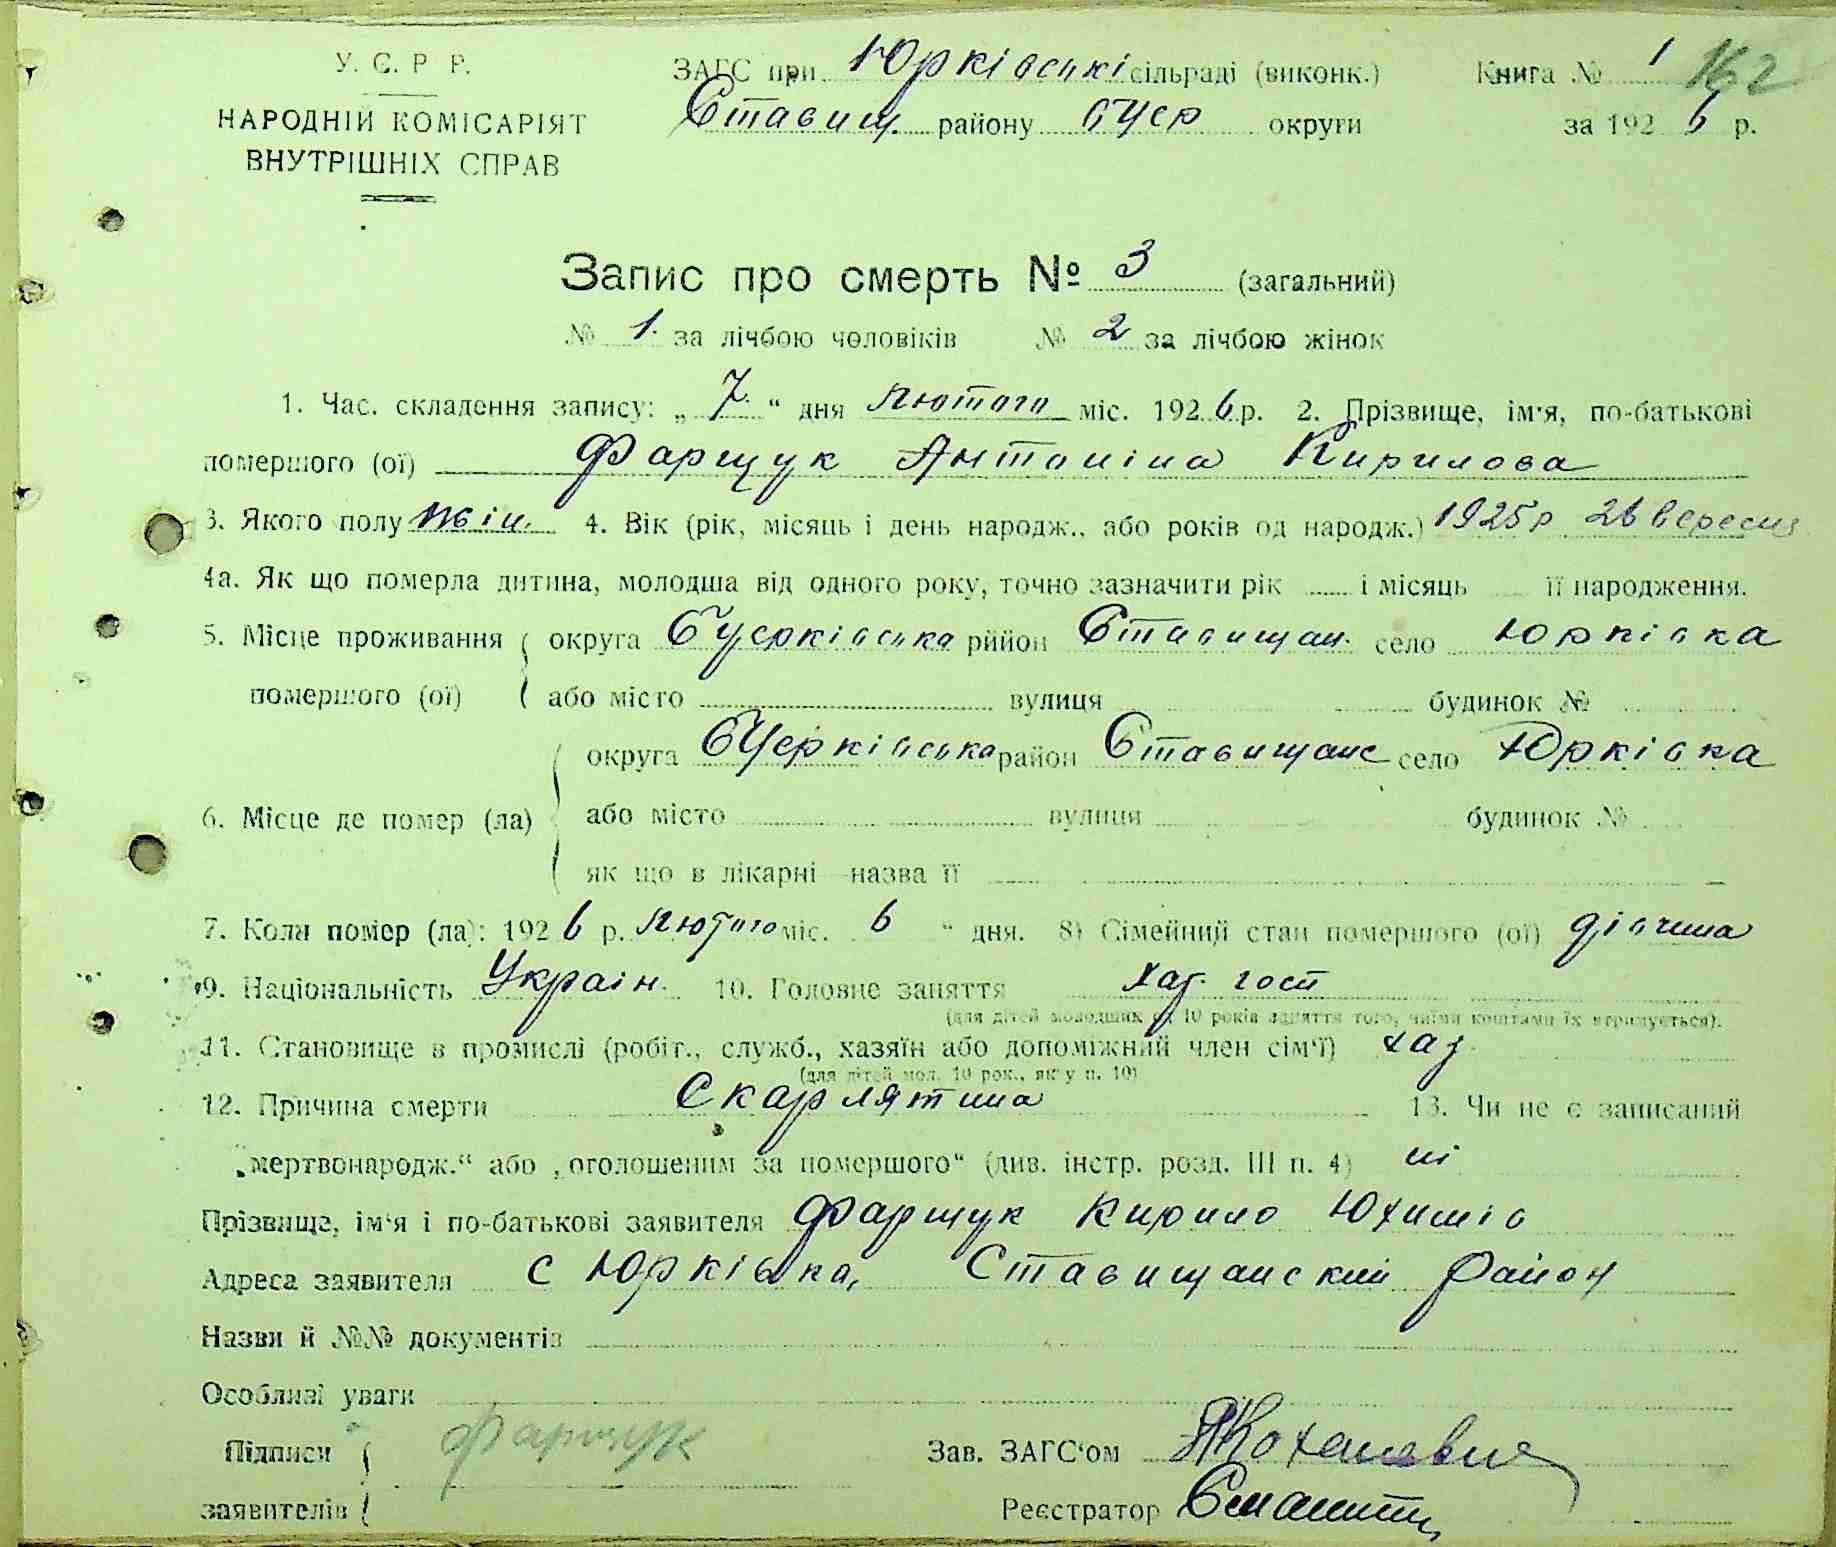 У. С. Р. Р.
НАРОДНІЙ КОМІСАРІЯТ
ВНУТРІШНІХ СПРАВ
ЗАГС при Юрківські сільраді (виконк.)
Ставищ. району БЦер округи
Книга № 1 162
за 1926 р.
Запис про смерть № 3 (загальний)
№ 1. за лічбою чоловіків № 2 за лічбою жінок
1. Час. складення запису: „ 7. “ дня Лютого міс. 1926 р. 2. Прізвище, ім'я, по-батькові
помершого (ої) Фарщук Антоніна Кирилова
3. Якого полу жін. 4. Вік (рік, місяць і день народж., або років од народж.) 1925 р 26 вересня
4а. Як що померла дитина, молодша від одного року, точно зазначити рік ...... і місяць ...... її народження.
5. Місце проживання округа БЦерківська рййон Ставищан. село Юрківка
помершого (ої) або місто вулиця будинок №
округа БЦерківська район Ставищанс село Юрківка
6. Місце де помер (ла) або місто вулиця будинок №
як що в лікарні—назва її
7. Коли помер (ла): 1926 р. Лютого міс. 6 “ дня. 8) Сімейний стан помершого (ої) дівчина
9. Національність Україн. 10. Головне заняття хаз. госп
(для дітей молодших од 10 років заняття того, чиїми коштами їх втримується).
11. Становище в промислі (робіт., служб., хазяїн або допоміжний член сім'ї) хаз
(для дітей мол. 10 рок., як у п. 10)
12. Причина смерти Скарлятина 13. Чи не є записаний
„мертвонародж.“ або „оголошеним за помершого“ (див. інстр. розд. III п. 4) ні
Прізвище, ім'я і по-батькові заявителя Фарщук Кирило Юхимів
Адреса заявителя с Юрківка, Ставищанский район
Назви й №№ документів
Особливі уваги
Підписи Фарщук Зав. ЗАГС'ом
заявителів Реєстратор